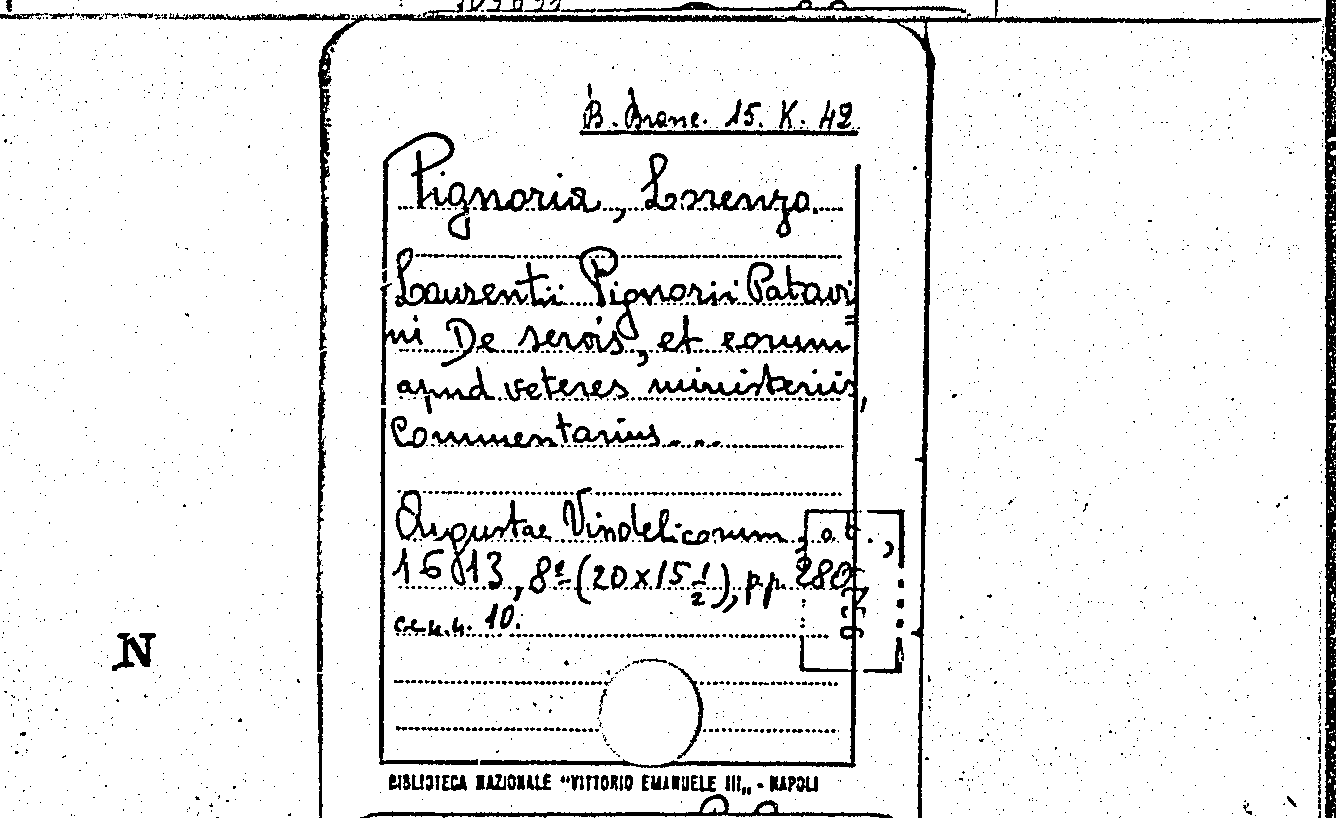 B. Branc. 15. K. 42
Pignoria, Lorenzo.
Laurentii Pignorii Patavi
ni De servis, et eorum
apud veteres ministeriis,
Commentarius...
Augustae Vindelicorum,
1613, 8º (20x15 1/2), pp. 280
cc.n.n. 10.
N
BIBLIOTECA NAZIONALE "VITTORIO EMANUELE III„ - NAPOLI